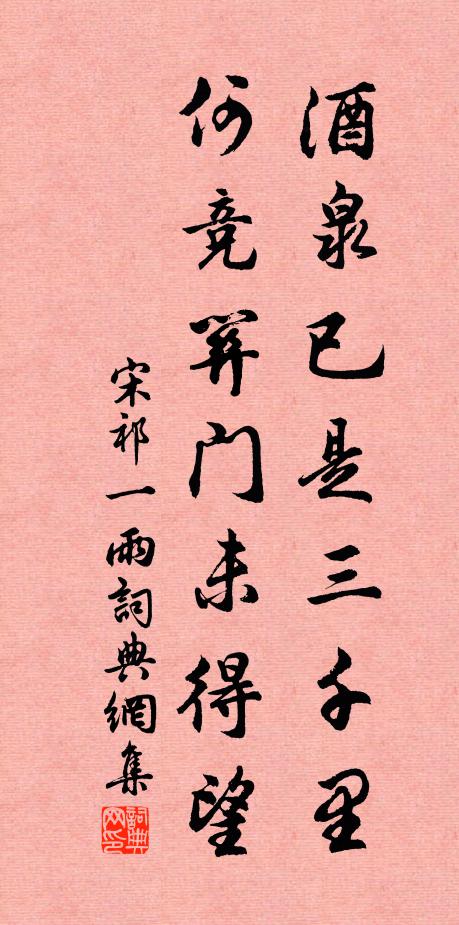 酒泉已是三千里
何竟關門未得望
宋祁一雨詞典網集
詞典網印